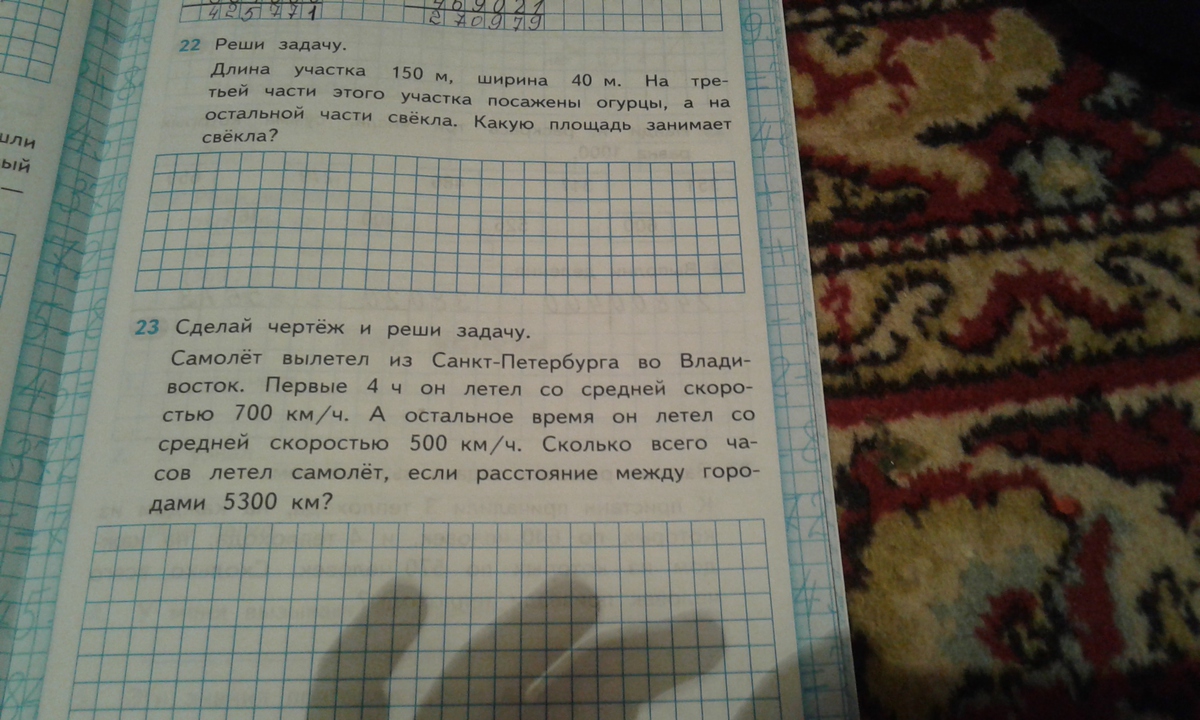 425771
270979
22 Реши задачу.
Длина участка 150 м, ширина 40 м. На тре-
тьей части этого участка посажены огурцы, а на
остальной части свёкла. Какую площадь занимает
свёкла?
23 Сделай чертёж и реши задачу.
Самолёт вылетел из Санкт-Петербурга во Влади-
восток. Первые 4 ч он летел со средней скоро-
стью 700 км/ч. А остальное время он летел со
средней скоростью 500 км/ч. Сколько всего ча-
сов летел самолёт, если расстояние между горо-
дами 5300 км?